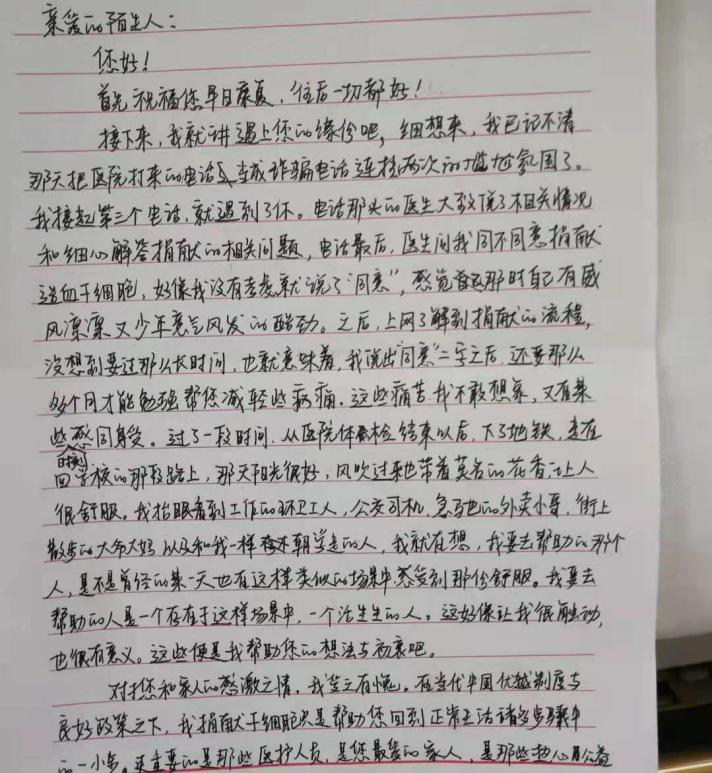 亲爱的陌生人：
您好！
首先祝福您早日康复，往后一切都好！
接下来，我就讲遇上您的缘份吧，细想来，我已记不清
那天把医院打来的电话当成诈骗电话连挂两次的尴尬氛围了。
我接起第三个电话，就遇到了你。电话那头的医生大致说了相关情况
和细心解答捐献的相关问题，电话最后，医生问我同不同意捐献
造血干细胞，好像我没有考虑就说了"同意"，感觉那时自己有威
风凛凛又少年意气风发的酷劲。之后，上网了解到捐献的流程，
没想到要过那么长时间，也就意味着，我说出"同意"二字之后，还要那么
多个月才能勉强帮您减轻些病痛。这些痛苦我不敢想象，又有某
些时刻感同身受。过了一段时间，从医院体检结束以后，下了地铁，走在
回学校的那段路上，那天阳光很好，风吹过来也带着莫名的花香，让人
很舒服。我抬眼看到工作的环卫工人，公交司机，急驰的外卖小哥，街上
散步的大爷大妈以及和我一样朝学走的人，我就在想，我要去帮助的那个
人，是不是曾经的某一天也在这样类似的场景中感受到那份舒服。我要去
帮助的人是一个存在于这样场景中，一个活生生的人。这好像让我很触动，
也很有意义。这些便是我帮助您的想法与初衷吧。
对于您和家人的感激之情，我受之有愧。在当代中国优越制度与
良好政策之下，我捐献干细胞只是帮助您回到正常生活诸多步骤中
的一小步。更重要的是那些医护人员，是您最爱的家人，是那些热心公益